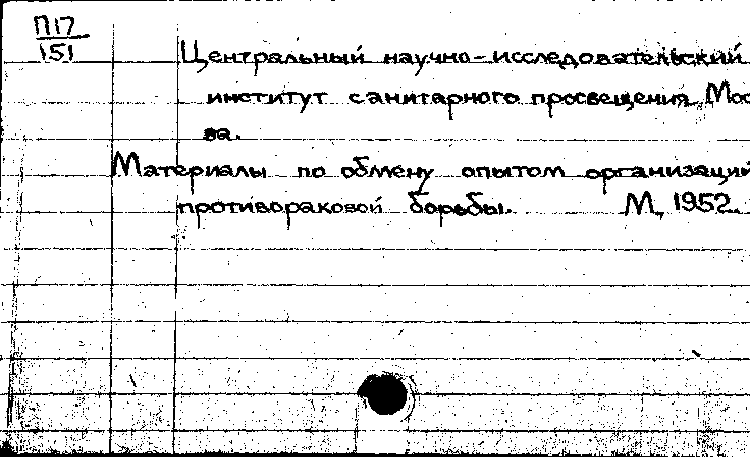 П17
151
Центральный научно-исследовательский
институт санитарного просвещения, Мос
ва.
Материалы по обмену опытом организаций
противораковой борьбы. М., 1952.